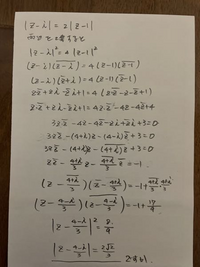 |z-i|=2|z-1|
両辺を2乗すると
|z-i|²=4|z-1|²
(z-i)(\overline{z-i})=4(z-1)(\overline{z-1})
(z-i)(\overline{z}+i)=4(z-1)(\overline{z}-1)
z\overline{z}+zi-\overline{z}i+1=4(z\overline{z}-z-\overline{z}+1)
z\overline{z}+zi-\overline{z}i+1=4z\overline{z}-4z-4\overline{z}+4
3z\overline{z}-4z-4\overline{z}-zi+\overline{z}i+3=0
3z\overline{z}-(4+i)z-(4-i)\overline{z}+3=0
3z\overline{z}-(4+i)z-\overline{(4+i)z}+3=0
z\overline{z}-\frac{4+i}{3}z-\frac{4-i}{3}\overline{z}=-1
(z-\frac{\overline{4+i}}{3})(\overline{z}-\frac{4+i}{3})=-1+\frac{4+i}{3}\frac{\overline{4+i}}{3}
(z-\frac{4-i}{3})(\overline{z-\frac{4-i}{3}})=-1+\frac{17}{9}
|z-\frac{4-i}{3}|²=\frac{8}{9}
|z-\frac{4-i}{3}|=\frac{2\sqrt{2}}{3}